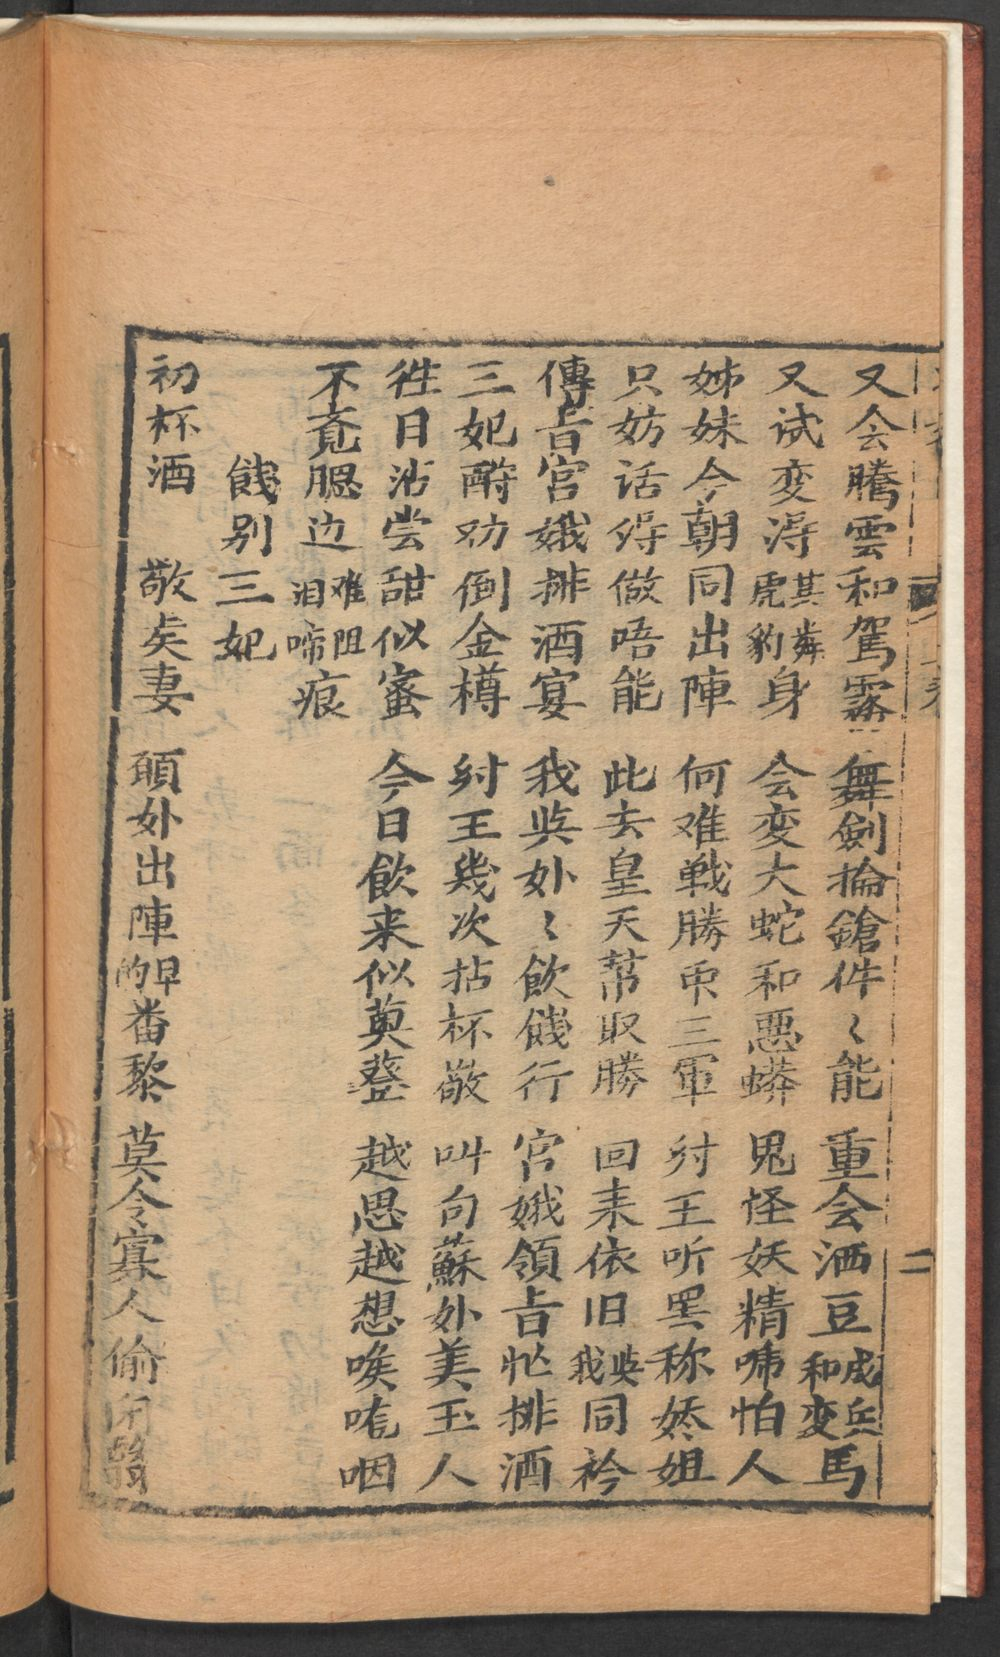 又会騰雲和駕霧 舞劍掄鎗件〻能 重会洒豆成兵和变馬
又试变淂其麟虎豹身 会变大蛇和悪蟒 鬼怪妖精啼怕人
姊妹今朝同出陣 何难戦勝帀三軍 紂王听罢称嫔姐
只妨话得做唔能 此去皇天帮取勝 回来依旧我共同衿
傳旨宫娥排酒宴 我共外〻飲餞行 宫娥領旨忙排酒
三妃酧劝倒金樽 紂王幾次拈杯敬 叫句蘇外美玉人
徃日沾尝甜似蜜 今日飲来似莫䔲 越思越想喉唴咽
不覔腮边难阻泪啼痕
餞别三妃
初杯酒 敬矣妻 願外出陣早的番黎 莫令寡人偷
二